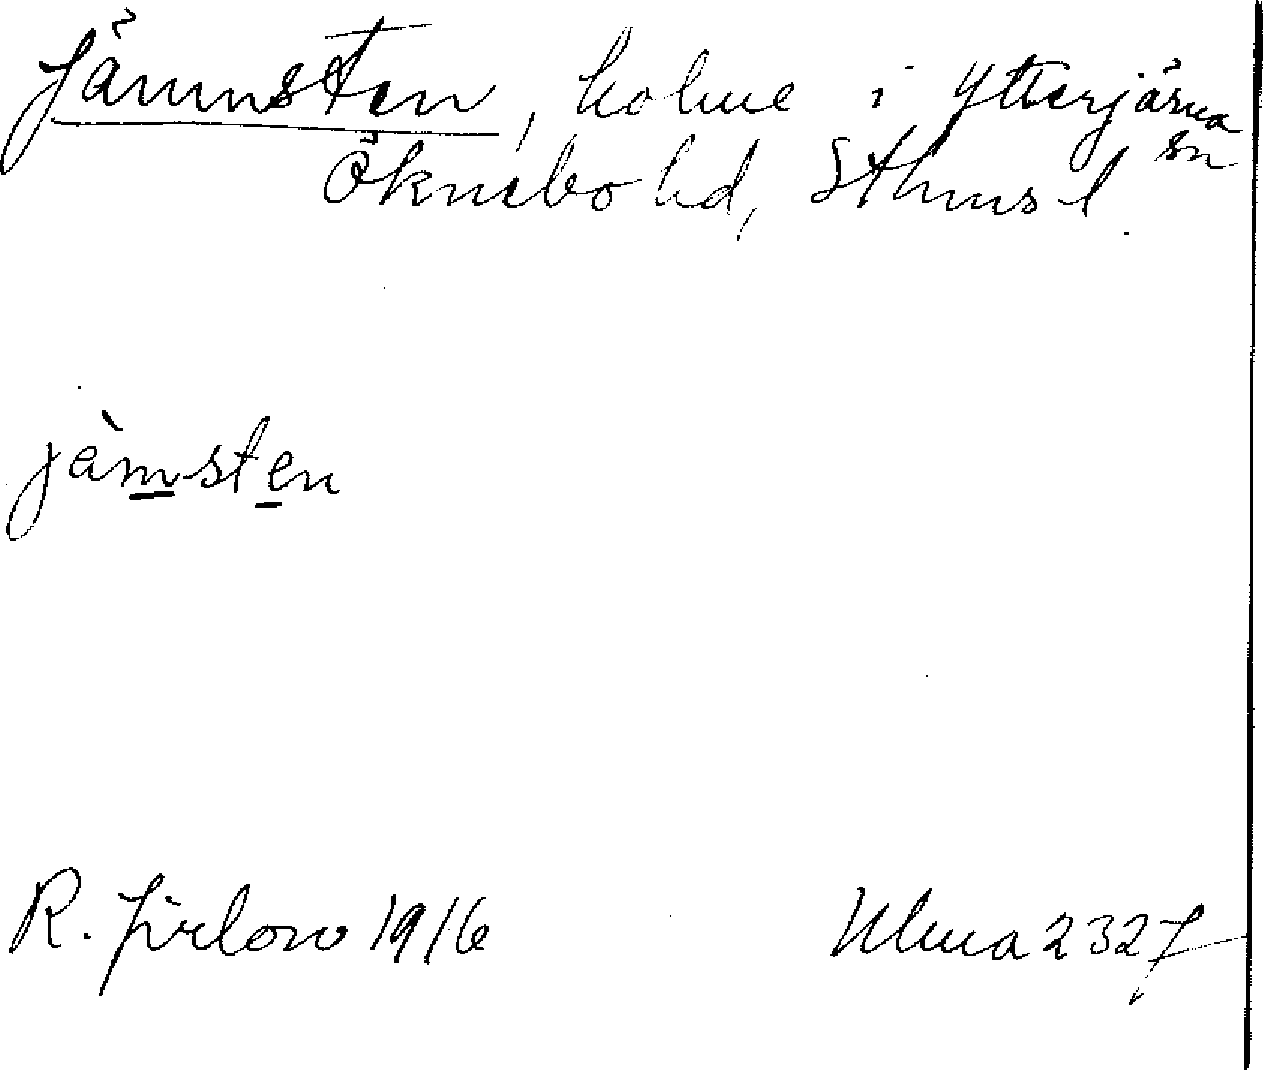 Jämnsten, holme i Ytterjärna sn
Öknebo hd, Sthms l.
jämsten
R. Jirlow 1916
Ulma 2327